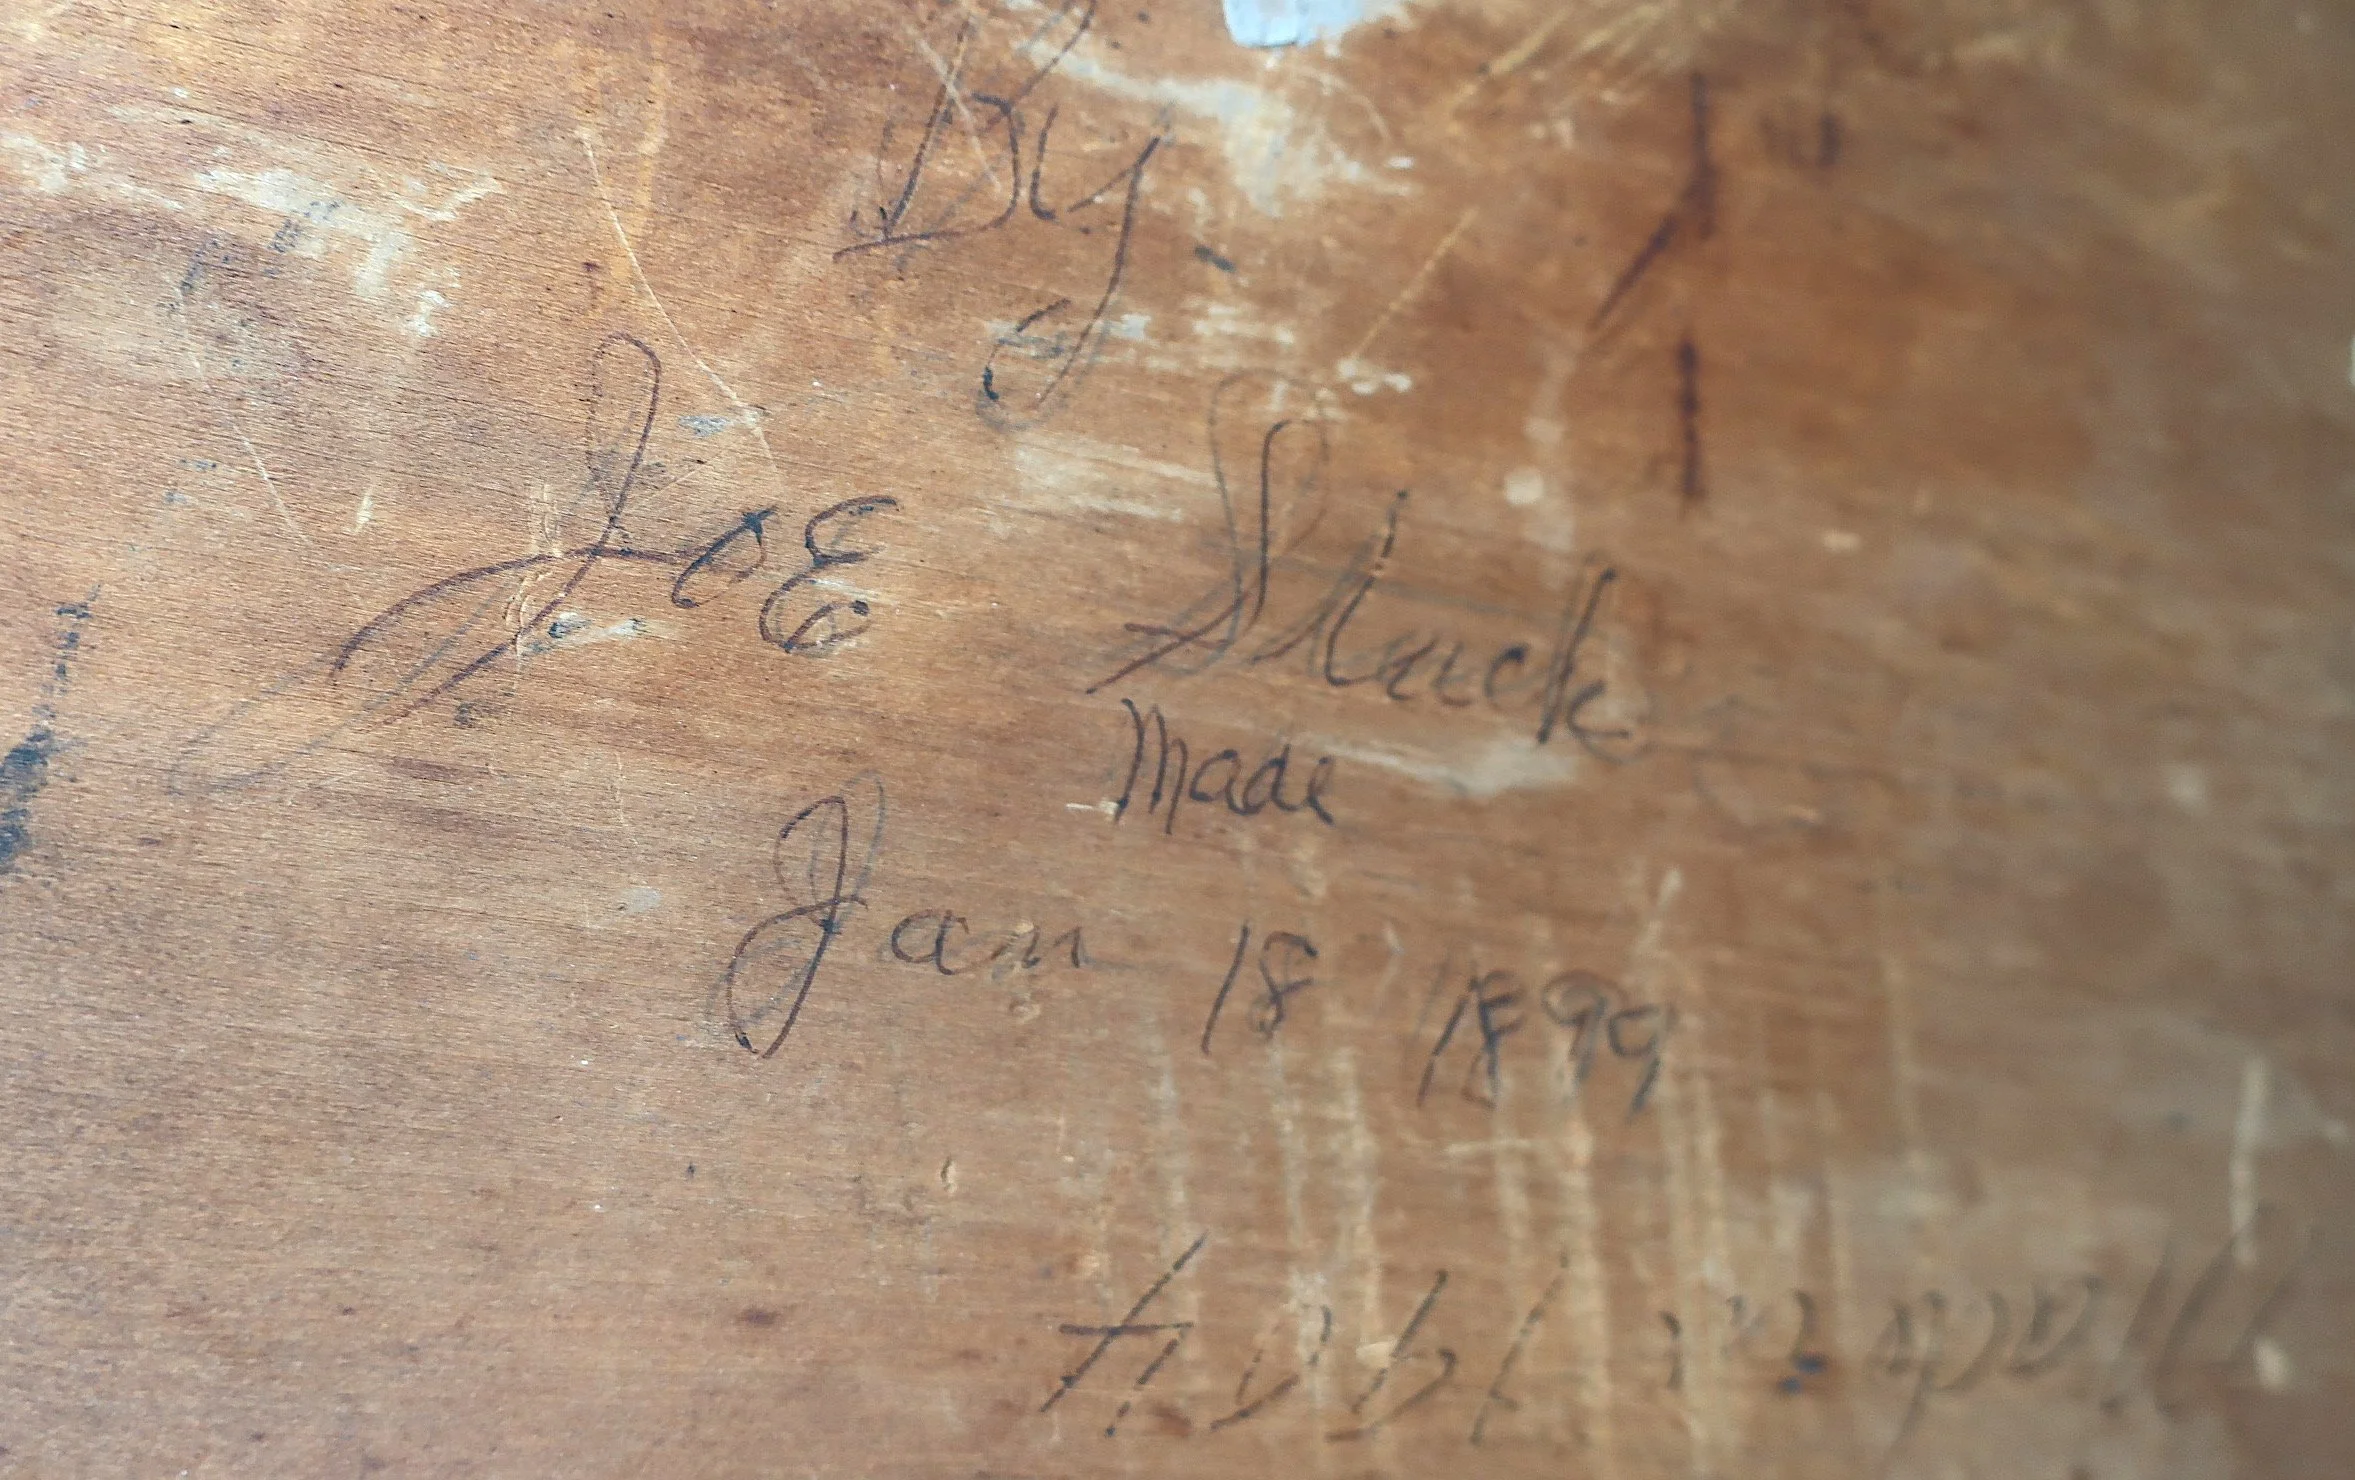 By
JoE Stuck
Made
Jan 18 1899